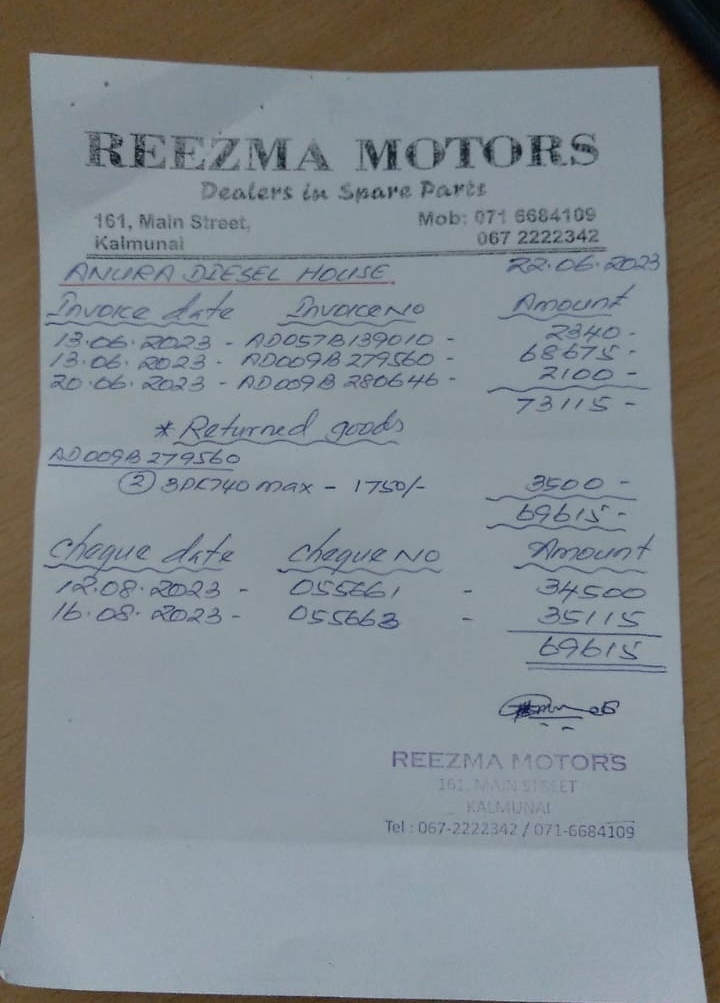 REEZMA MOTORS
Dealers in Spare Parts
161, Main Street, Mob: 071 6684109
Kalmunai 067 2222342
ANURA DIESEL HOUSE 22.06.2023
Invoice date Invoice No Amount
13.06.2023 - AD057B139010 - 2340-
13.06.2023 - AD009B279560 - 68675-
20.06.2023 - AD009B280646 - 2100-
73115-
* Returned goods
AD009B279560
② 3PK740 max - 1750/- 3500-
69615-
Cheque date Cheque No Amount
12.08.2023 - 055661 - 34500
16.08.2023 - 055663 - 35115
69615
REEZMA MOTORS
161, MAIN STREET
KALMUNAI
Tel : 067-2222342 / 071-6684109